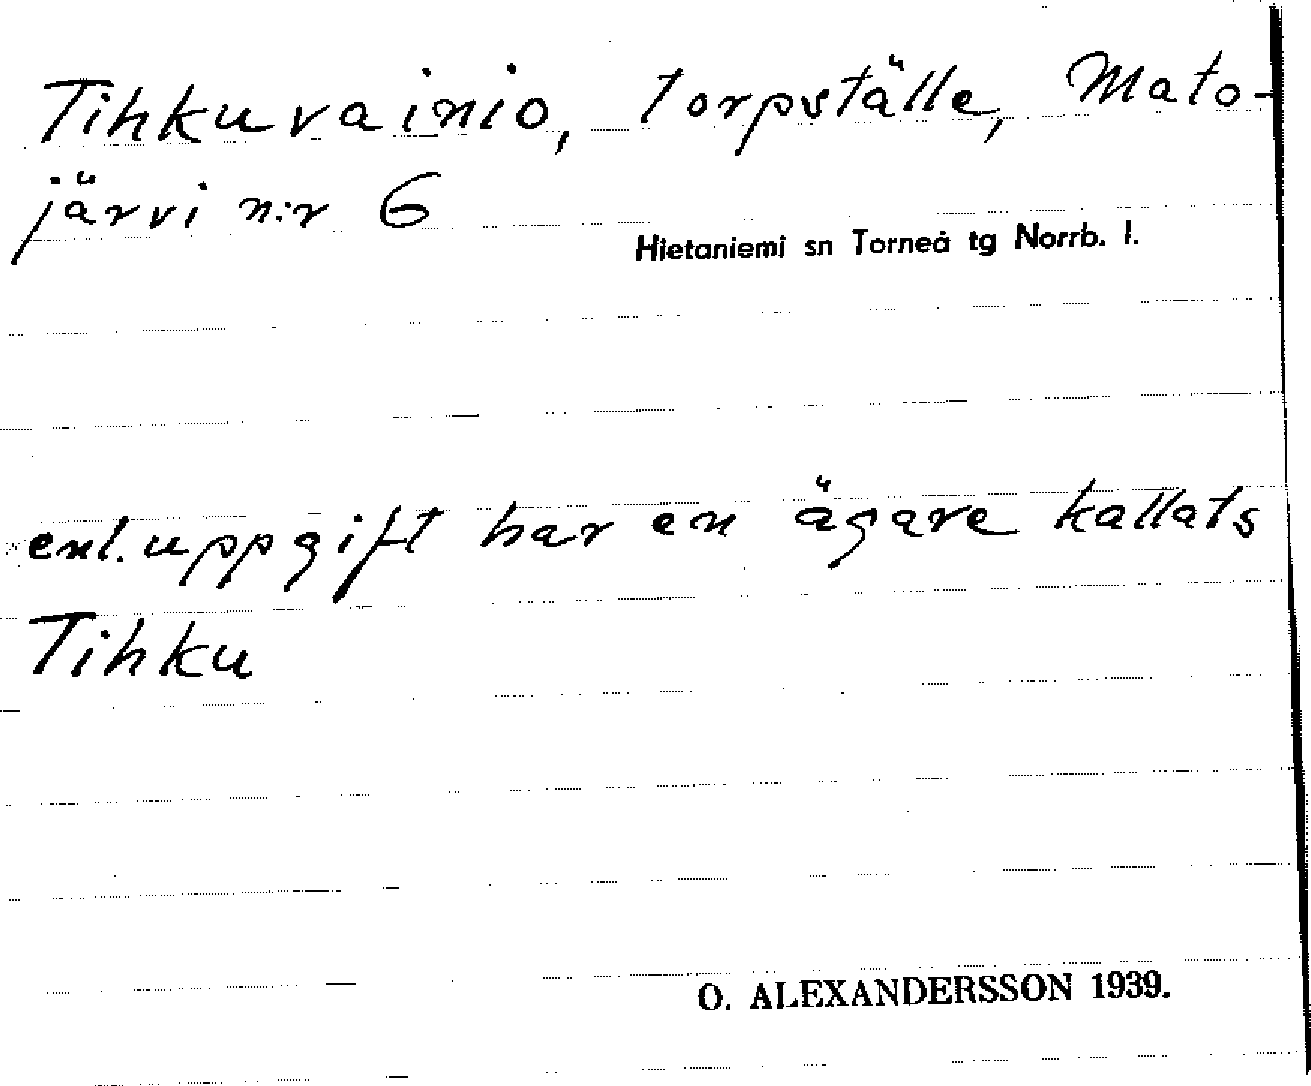 Tihkuvainio, torpställe, Mato-
järvi n:r 6
Hietaniemi sn Torneå tg Norrb. l.
enl. uppgift har en ägare kallats
Tihku
O. ALEXANDERSSON 1939.